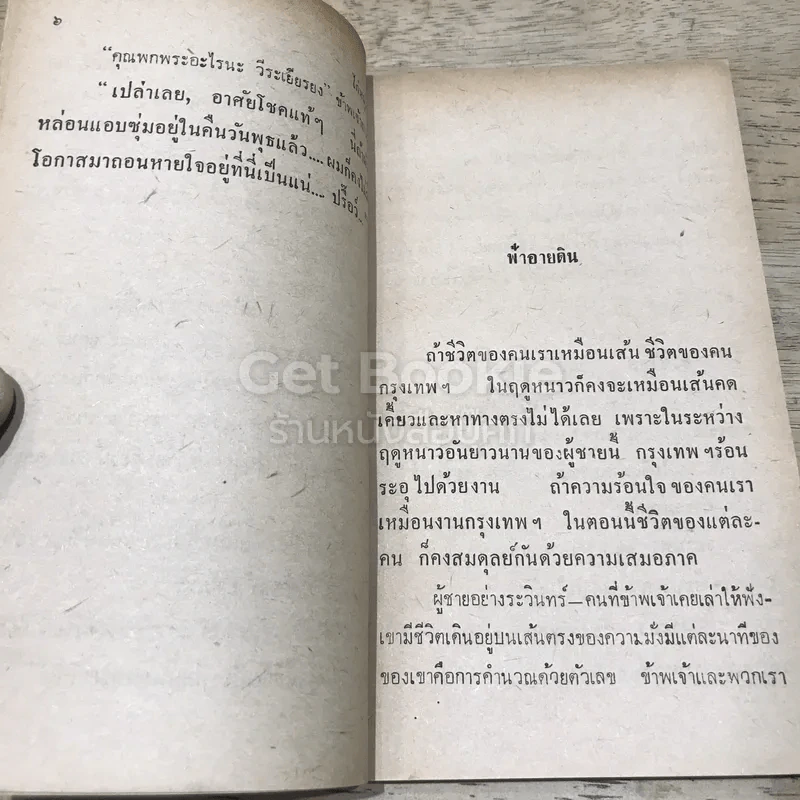 ๖
“คุณพกพระอะไรนะ วีระเยียรยง” ข้าพเจ้า
“เปล่าเลย, อาศัยโชคแท้ๆ
หล่อนแอบซุ่มอยู่ในคืนวันพุธแล้ว.... ผมก็คง
โอกาสมาถอนหายใจอยู่ที่นี่เป็นแน่.... ปรื๊อร์...
ฟ้าอายดิน
ถ้าชีวิตของคนเราเหมือนเส้น ชีวิตของคน
กรุงเทพฯ ในฤดูหนาวก็คงจะเหมือนเส้นคด
เคี้ยวและหาทางตรงไม่ได้เลย เพราะในระหว่าง
ฤดูหนาวอันยาวนานของผู้ชายนี้ กรุงเทพฯร้อน
ระอุไปด้วยงาน ถ้าความร้อนใจของคนเรา
เหมือนงานกรุงเทพฯ ในตอนนี้ชีวิตของแต่ละ-
คน ก็คงสมดุลย์กันด้วยความเสมอภาค
ผู้ชายอย่างระวินทร์—คนที่ข้าพเจ้าเคยเล่าให้ฟัง-
เขามีชีวิตเดินอยู่บนเส้นตรงของความมั่งมีแต่ละนาทีของ
ของเขาคือการคำนวณด้วยตัวเลข ข้าพเจ้าและพวกเรา
Get Bookie
ร้านหนังสือบุ๊คกี้